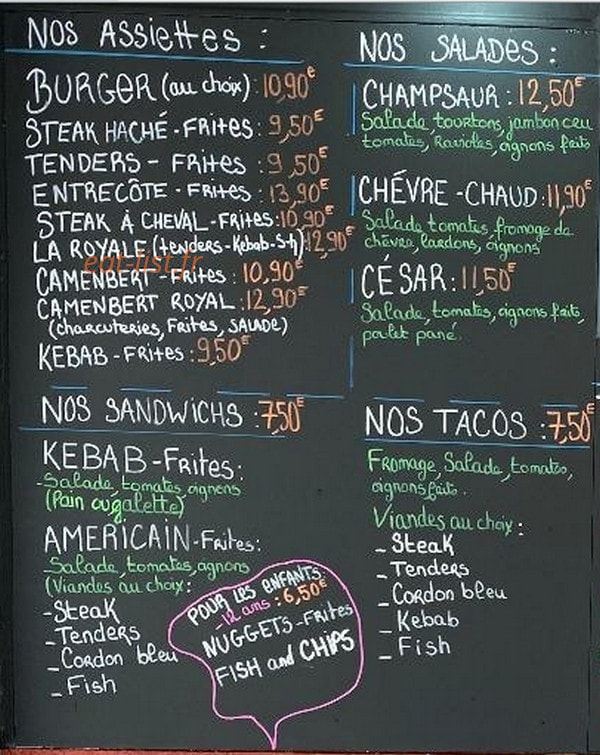 NOS ASSIETTES :
BURGER (au choix) : 10,90€
STEAK HACHÉ - FRITES : 9,50€
TENDERS - FRITES : 9,50€
ENTRECÔTE - FRITES : 13,90€
STEAK À CHEVAL - FRITES : 10,90€
LA ROYALE (tenders - Kebab - S-h) : 12,90€
eat-list.fr
CAMENBERT - FRITES : 10,90€
CAMENBERT ROYAL : 12,90€
(charcuteries, FRITES, SALADE)
KEBAB - FRITES : 9,50€
NOS SALADES :
CHAMPSAUR : 12,50€
Salade, tourtons, jambon cru
tomates, Ravioles, oignons frits
CHÉVRE - CHAUD : 11,90€
Salade tomates, fromage de
chèvre, lardons, oignons
CÉSAR : 11,50€
Salade, tomates, oignons frits,
poulet pané.
NOS SANDWICHS : 7,50€
KEBAB - FRITES :
- Salade, tomates, oignons
(Pain ou galette)
AMERICAIN - FRITES :
- Salade, tomates, oignons
(Viandes au choix :
- Steak
- Tenders
- Cordon bleu
- Fish
POUR LES ENFANTS :
- 12 ans : 6,50€
NUGGETS - FRITES
FISH and CHIPS
NOS TACOS : 7,50€
Fromage, Salade, tomates,
oignons frits.
Viandes au choix :
- Steak
- Tenders
- Cordon bleu
- Kebab
- Fish